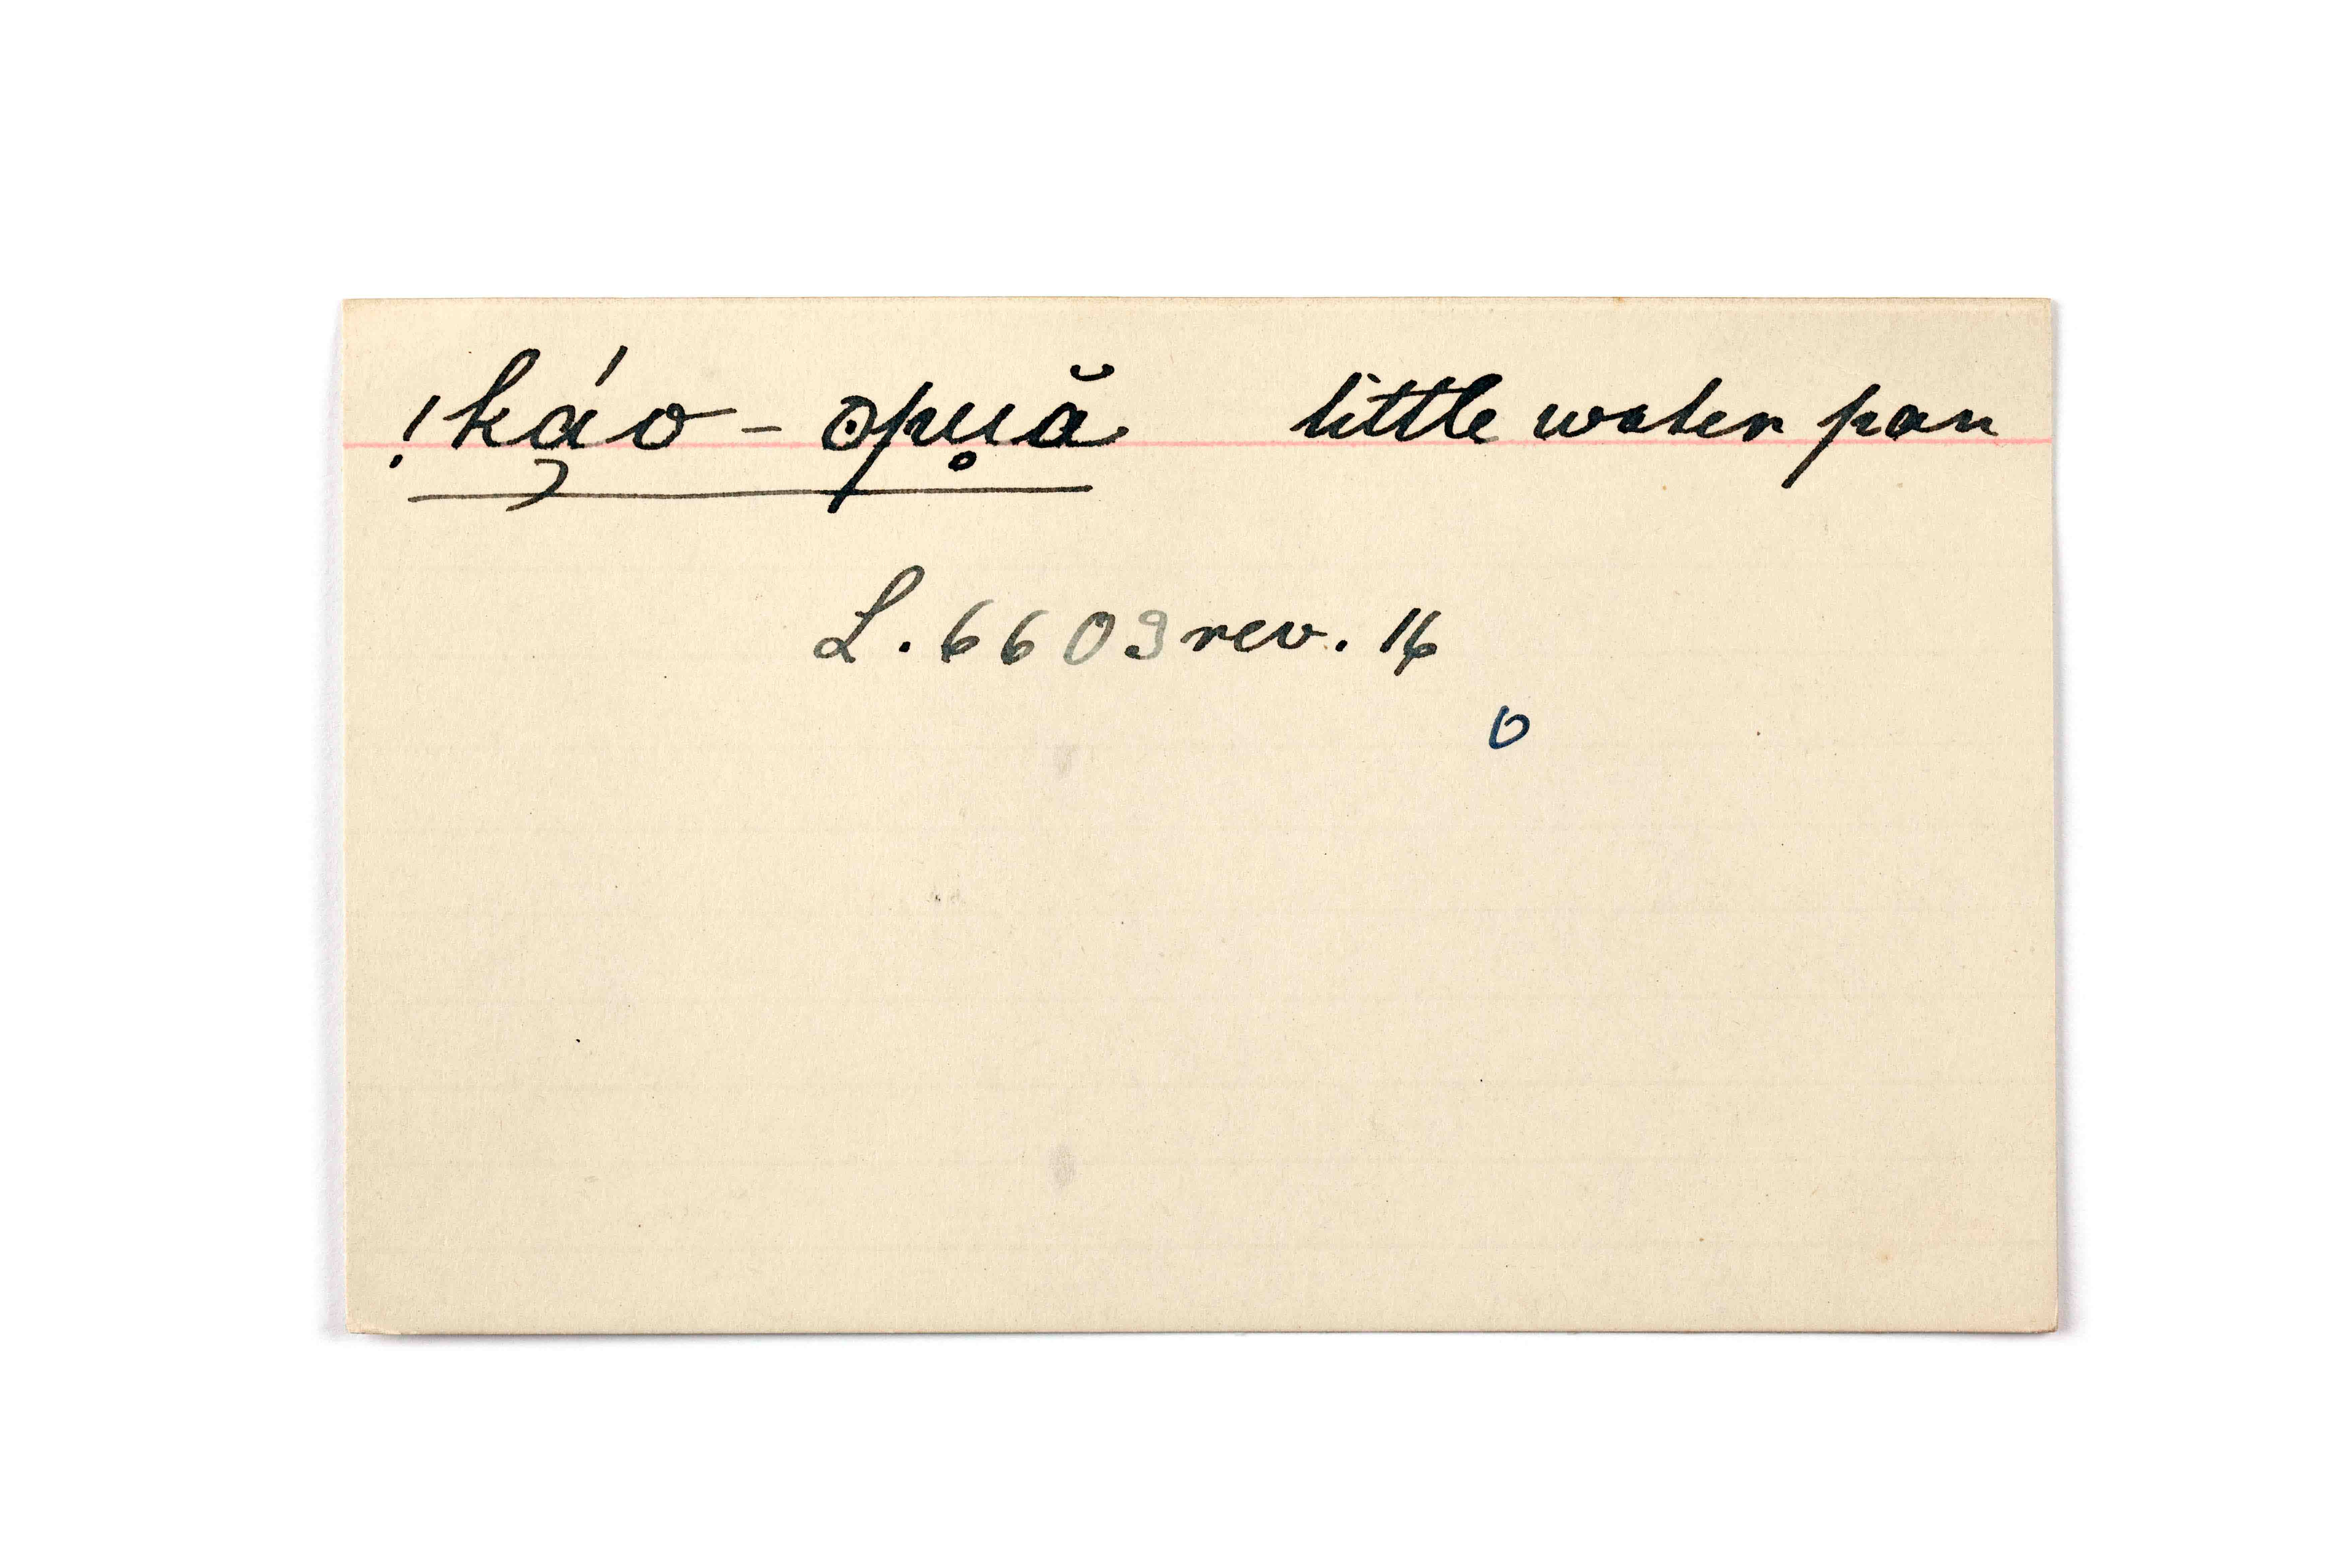 !k̲á̜o - o̲pu̥ă little water pan
L. 6609 rev. 16
o